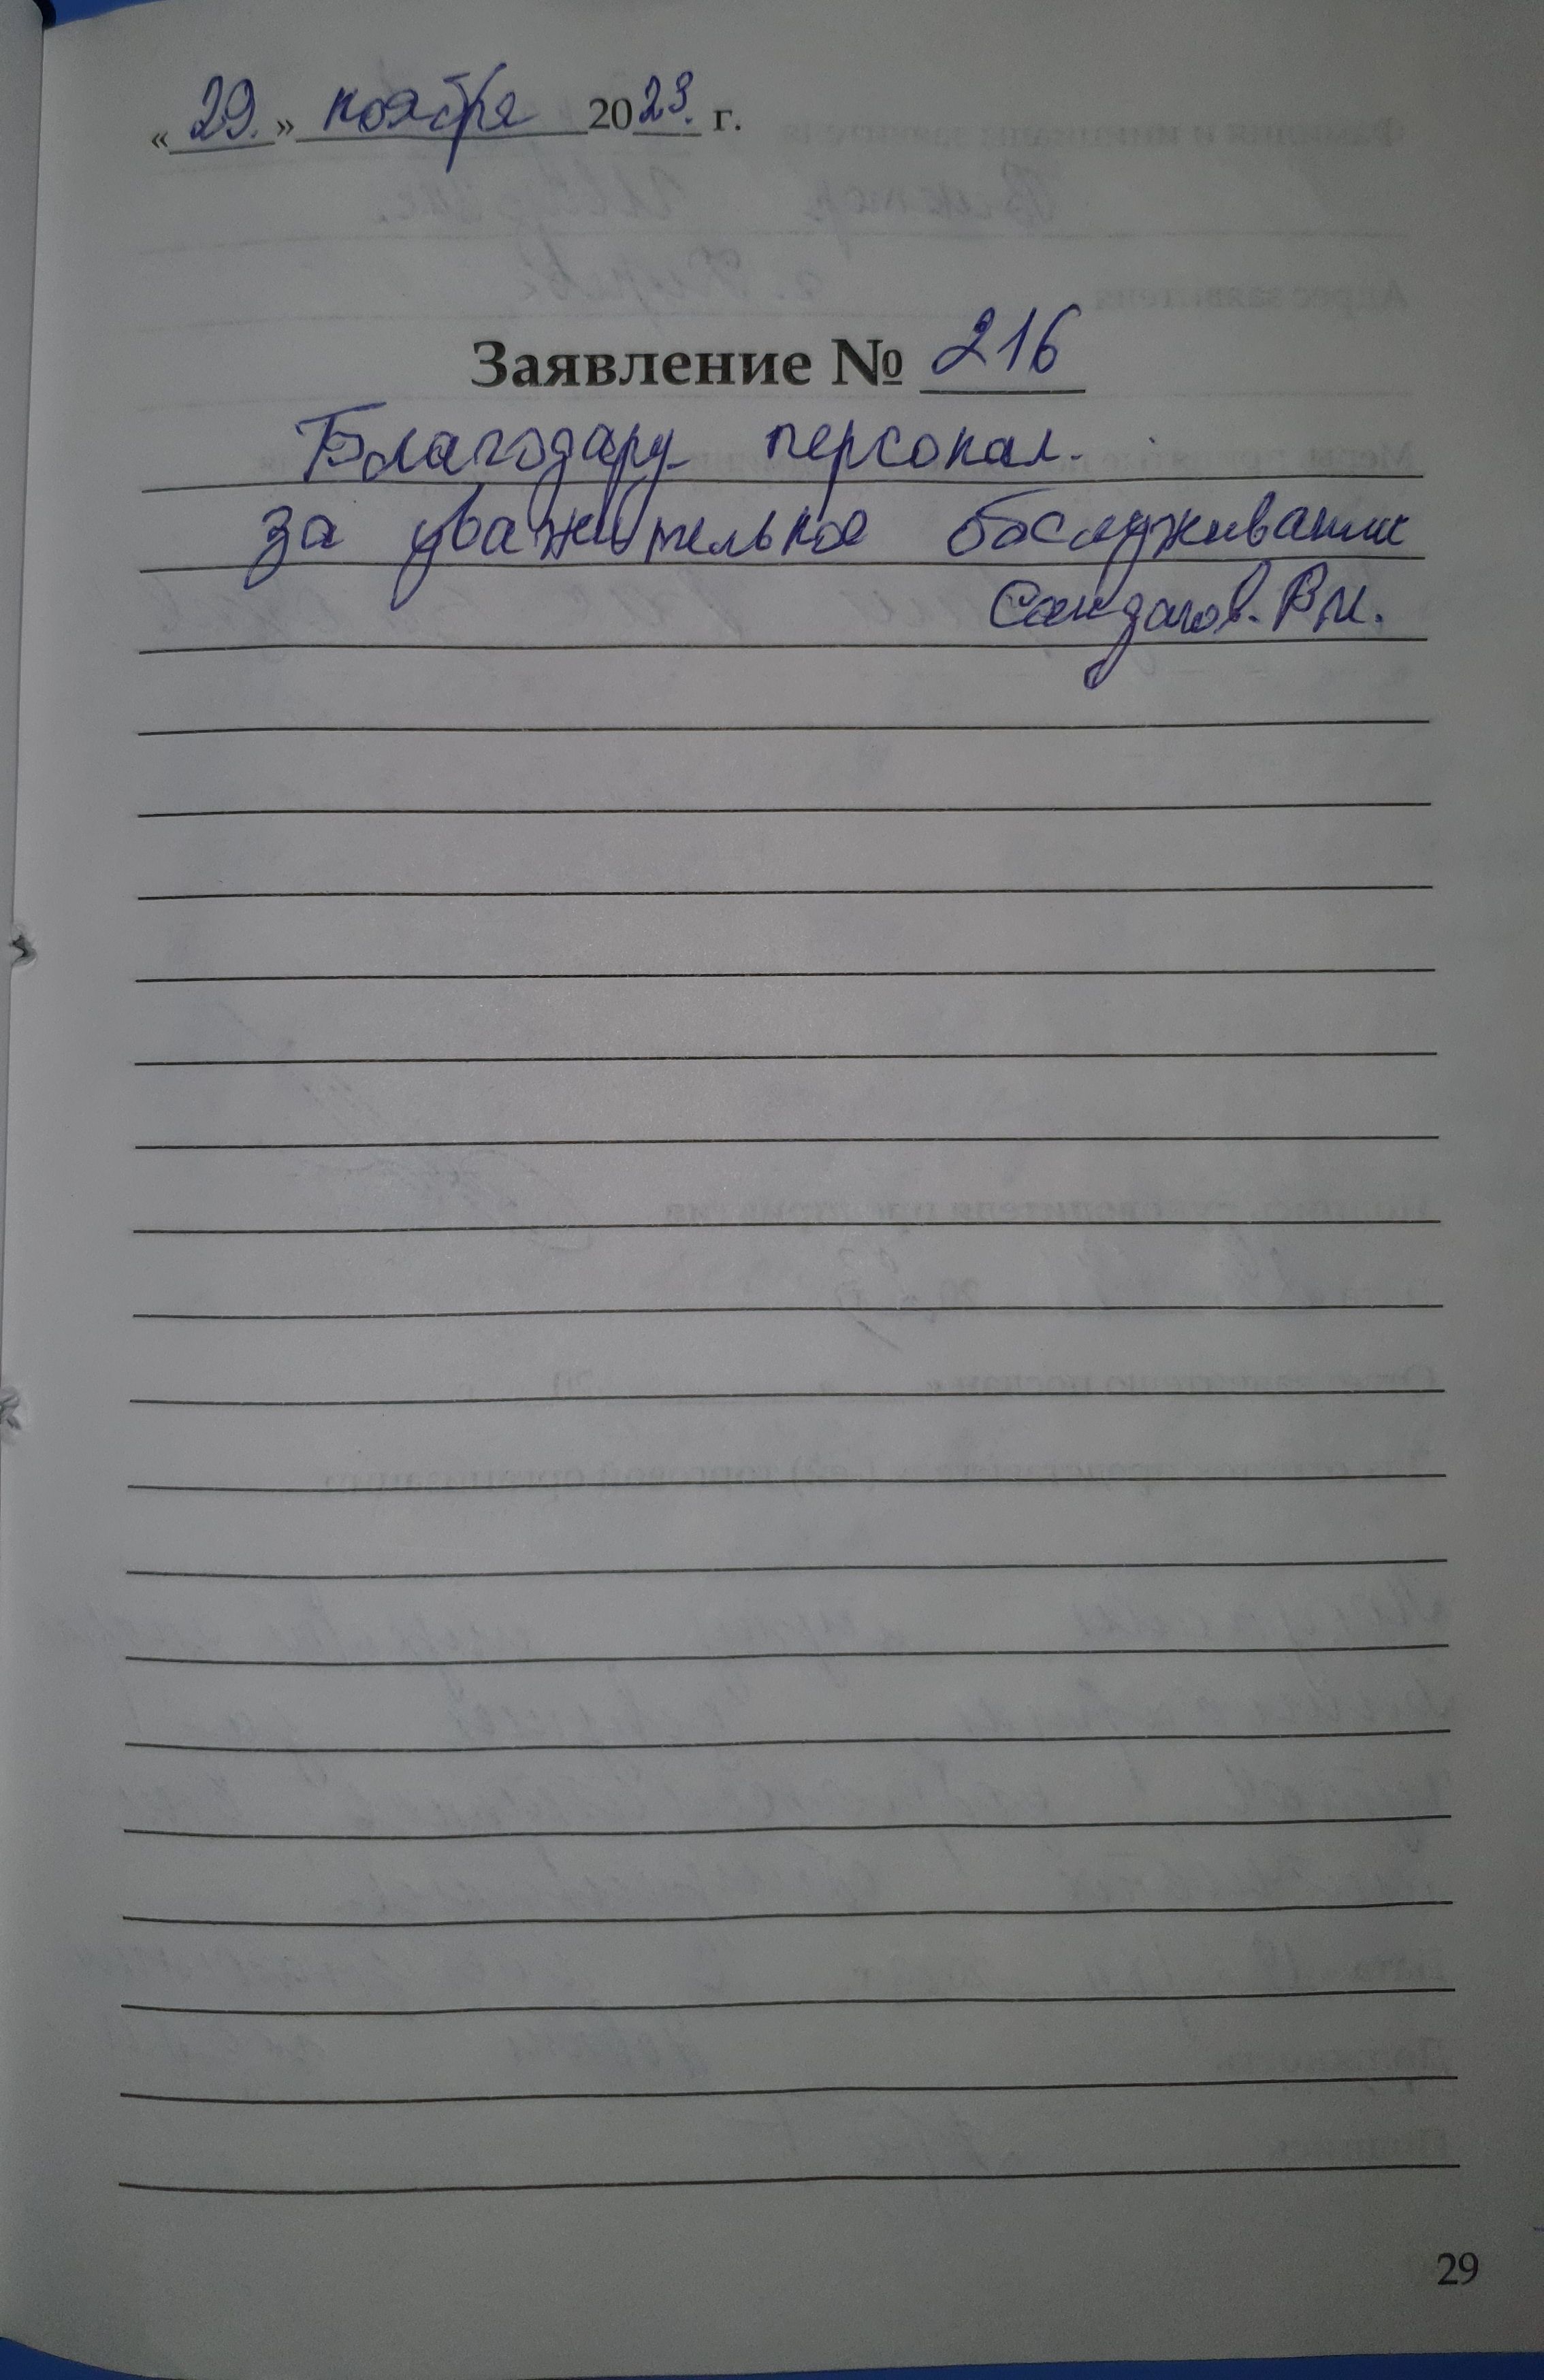 «29.» ноября 2023. г.
Заявление № 216
Благодару персонал.
за уважительное обслуживание
В.И.
29